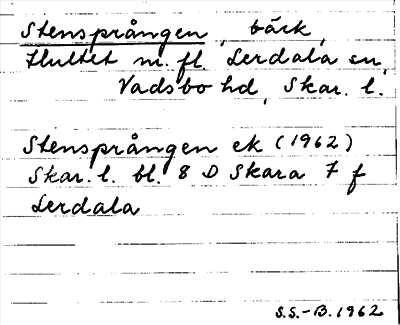 Stensprången, bäck,
Hultet m.fl. Lerdala sn,
Vadsbo hd, Skar. l.
Stensprången ek (1962)
Skar. l. bl. 8 D Skara 7 f
Lerdala
S.S.-B. 1962